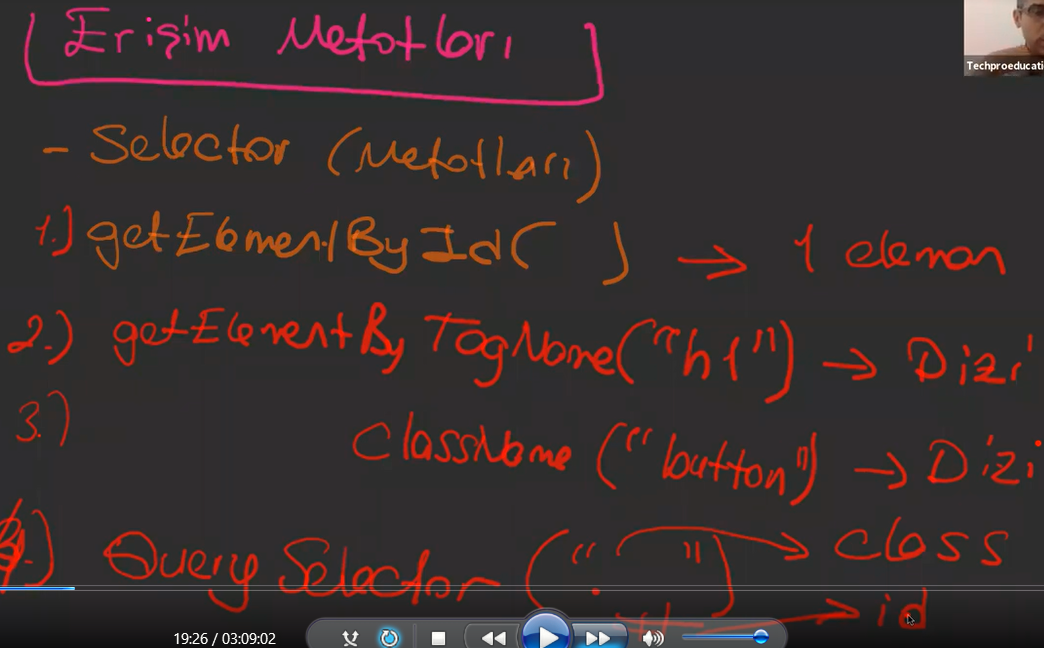 Erişim Metotları
Techproeducati
- Selector (Metotları)
1.) getElementById( ) → 1 eleman
2.) getElementByTagName("h1") → Dizi
3.) ClassName ("button") → Dizi
4.) Query Selector (". ") → class
# → id
19:26 / 03:09:02